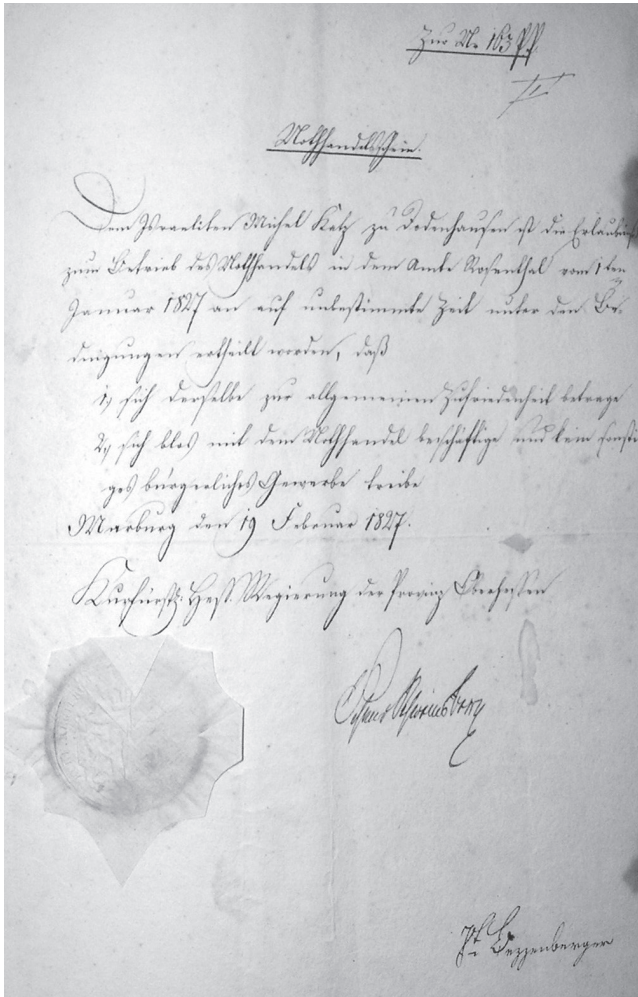 Zur Nr 163 PP.
II
Nothhandelsschein.
Dem Israeliten Michel Katz zu Dodenhausen ist die Erlaubniß
zum Betrieb des Nothhandels in dem Amte Rosenthal vom 1ten
Januar 1827 an auf unbestimmte Zeit unter den Be-
dingungen ertheilt worden, daß
1, sich derselbe zur allgemeinen Zufriedenheit betrage
2, sich blos mit dem Nothhandel beschäftige und kein sonsti
ges bürgerliches Gewerbe treibe
Marburg den 19 Februar 1827.
Kurfürstl. Hess. Regierung der Provinz Oberhessen
Schenk Schweinsberg
Bezzenberger